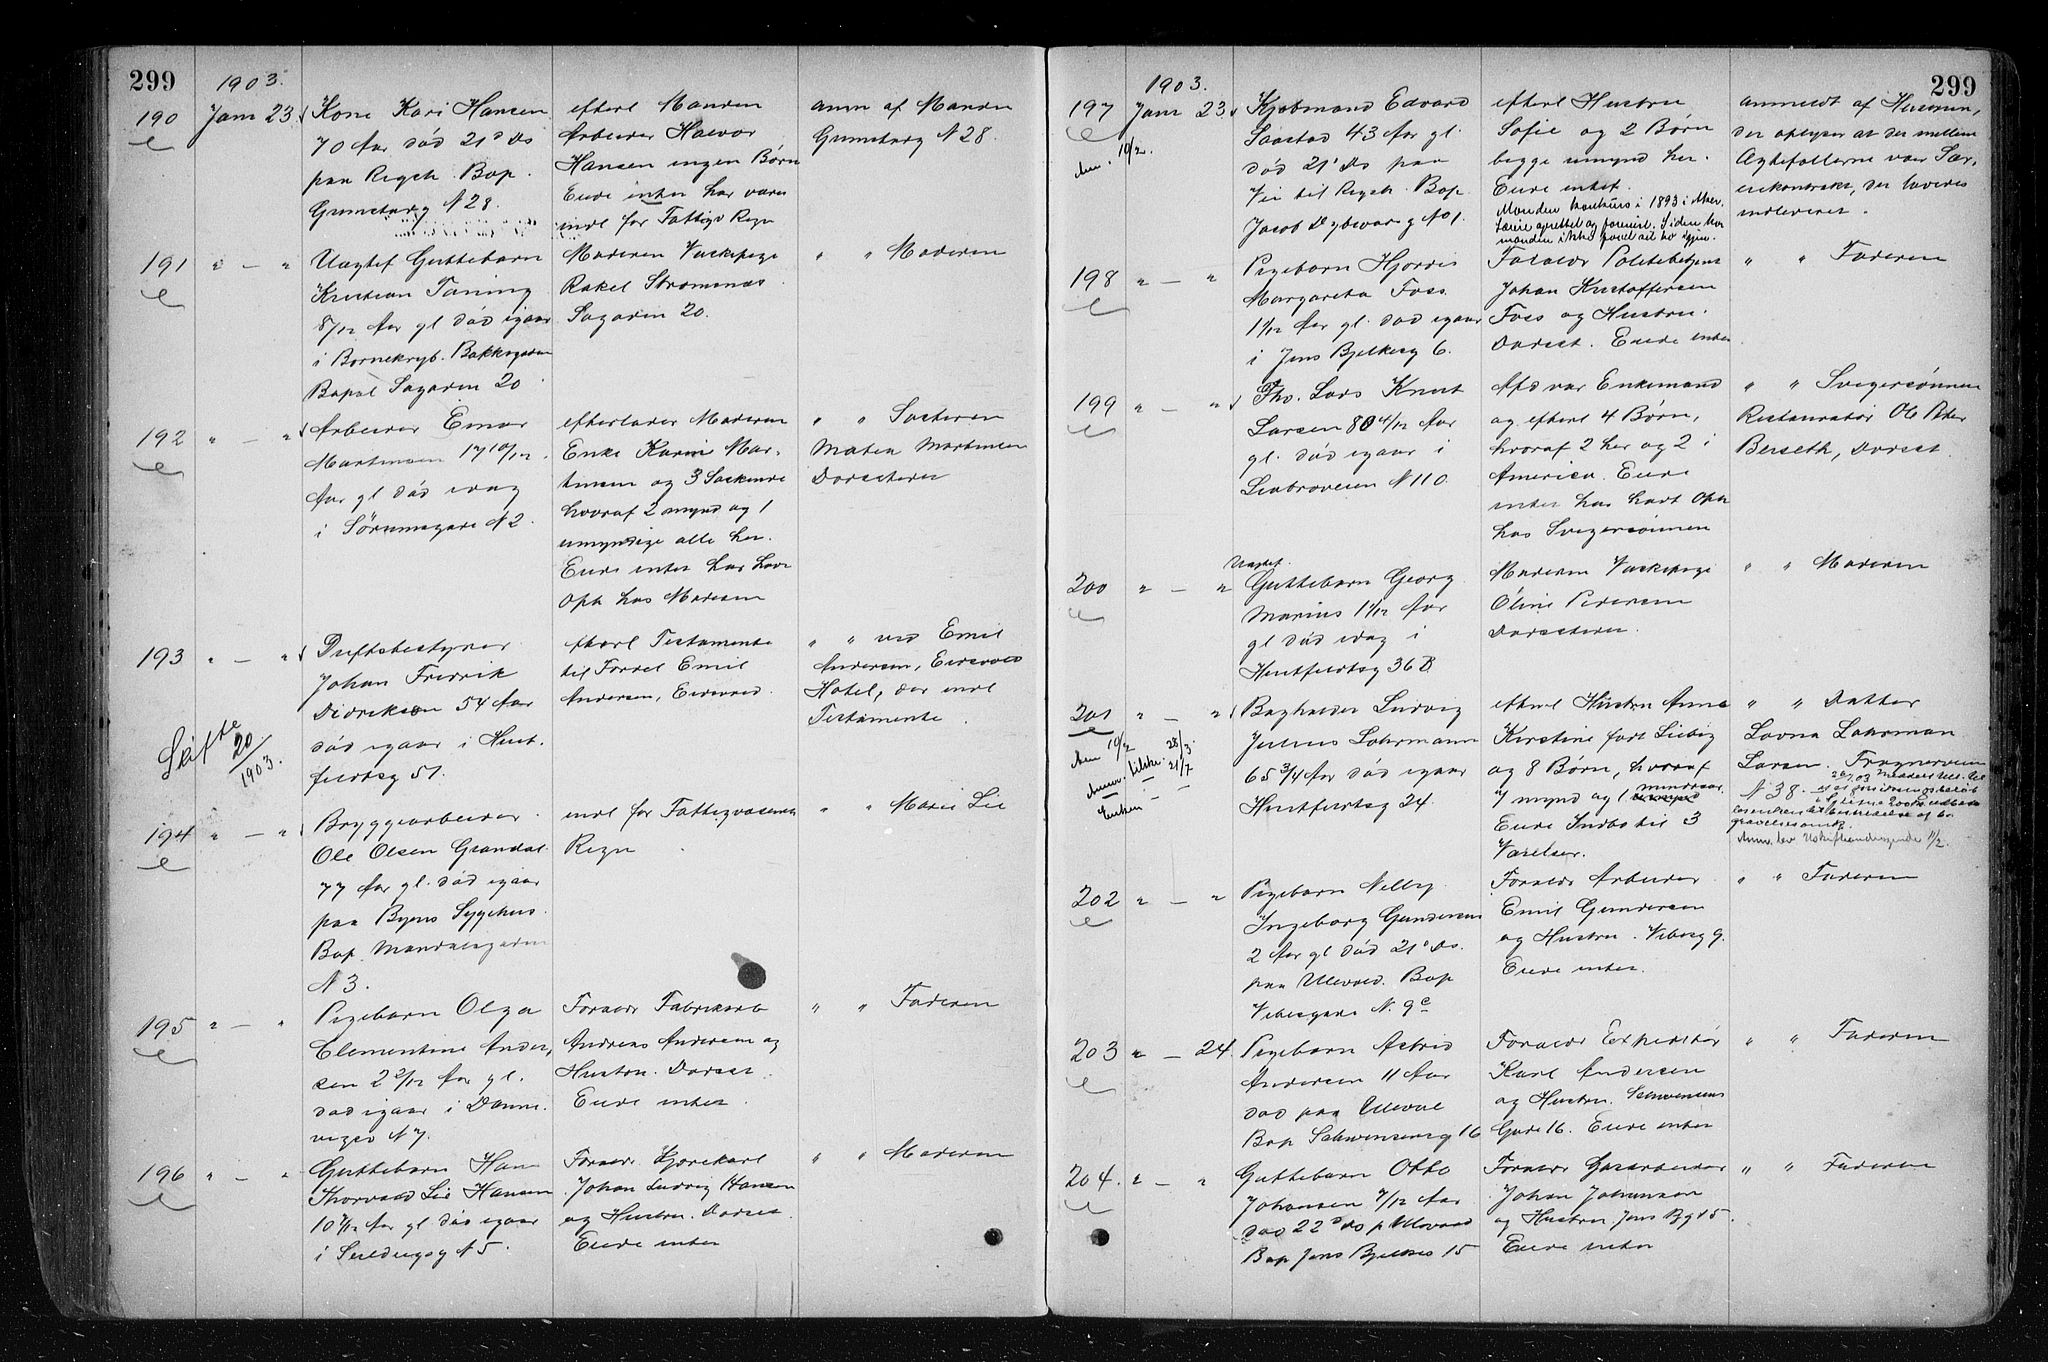 299
1903.
190
Janr 23
Kone Kari Hansen
70 Aar død 21' Ds
paa Rigsh. Bop.
Grunsetbrg N 28.
efterl Manden
Arbeider Halvor
Hansen ingen Børn
Eiede intet har været
indl for Fattigv Regn
anm af Manden
N 28.
191
" — "
Uægtef Guttebarn
Kristian
8/12 Aar gl død igaar
i Børnekryb. Bakkegaden
Bopæl 20
Moderen Vaskepige
Rakel Strømsnæs
20.
" " Moderen
192
" — "
Arbeider Einar
Martinsen 17 10/12
Aar gl død idag
i Sörumsgade N 2.
efterlader Moderen
Enke Karine Mar-
tinsen og 3 Søskende
hvoraf 2 mynd og 1
umyndige alle her.
Eiede intet har havt
Oph hos Moderen
" " Søsteren
Martinsen
Dorsteder
193
" — "
Driftsbestyrer
Johan Fredrik
Didriksen 54 Aar
død igaar i Huit-
feldtsg 51.
efterl Testamente
til Emil
Andersen, Eidsvold.
" " ved Emil
Andersen, Eidsvolds
Hotel, der indl
Testamente.
Skifte
20
1903.
194
" — "
Bryggearbeider
Ole Olsen Grøndal
77 Aar gl. død igaar
paa Byens Sygehus.
Bop Mandalsgaden
N 3.
indl for Fattigvæsenets
Regn
" " Marie Lie
195
" — "
Pigebarn Olga
Clementine Ander,
sen 2 2/12 Aar gl.
død igaar i Danne-
vigsv N 7.
Foræld Fabrikarb
Andreas Andersen og
Hustru. Dorset
Eiede intet.
" " Faderen
196
" — "
Guttebarn Hans
Thorvald Lie Hansen
10 7/12 Aar gl død igaar
i N 5.
Foræld Kjørekarl
Johan Ludvig Hansen
og Hustru. Dorset.
Eiede intet
" " Moderen
299
1903.
197
Janr 23
Anm. 10/2.
Kjøbmand Edvard
Saastad 43 Aar gl.
død 21' Ds paa
Vei til Rigsh. Bop
Jacob Dybwadsg No 1.
efterl Hustru
Sofie og 2 Børn
begge umynd her.
Eiede intet.
Manden konkurs i 1893 i
oprettet og Siden har
manden ikke havt igjen.
anmeldt af Hustruen,
der oplyser at der mellem
Ægtefællerne var Sær-
eiekontrakt, der loveres
indleveret.
198
" — "
Pigebarn Hjordis
Margareta Foss
1 1/12 Aar gl. død igaar
i Jens Bjelkesg 6.
Foræld Politibetjent
Johan Kristoffersen
Foss og Hustru.
Dorset. Eiede intet
" " Faderen
199
" — "
Fhv. Lods Knut
Larsen 80 4/12 Aar
gl. død igaar i
Ljabroveien N 110.
Afd var Enkemand
og efterl 4 Børn,
hvoraf 2 her og 2 i
America. Eiede
intet har havt Oph
hos Svigersønnen
" " Svigersönnen
Restauratør Ole Peter
Berseth, Dorset.
200
" — "
Uægtef.
Guttebarn Georg
Marius 1 1/12 Aar
gl død idag i
Huitfeldtsg 36 B
Moderen Vaskepige
Oline Pedersen
Dorsteder.
" " Moderen
201
" — "
Anm 10/2
Anm. tilstr. 28/3.
21/7
Enken — -
Bogholder Ludvig
Julius Lohrmann
65 3/4 Aar død igaar
Huitfeldtsg 24.
efterl Hustru Anna
Kirstine født Liebig
og 8 Børn, hvoraf
7 mynd og 1 mindreaar.
Eiede Indbo til 3
Værelser.
" " Datter
Lovna Lohrman
Larsen. Frognerveien
N 38.
gravelsesomk.
202
" — "
Pigebarn Nelly
Ingeborg Gundersen
2 Aar gl død 21' Ds.
paa Ullevold. Bop
Vibesgade N. 9c
Foræld Arbeider
Emil Gundersen
og Hustru. Vibesg 9.
Eiede intet.
" " Faderen
203
" — 24.
Pigebarn Astrid
Andersen 11 Aar
død paa Ullevol
Bop Schwensensg 16
Foræld Expeditør
Karl Andersen
og Hustru. Schwensens
Gade 16. Eiede intet
" " Faderen
204.
" — "
Guttebarn Otto
Johansen 7/12 Aar
død 22' Ds p Ullevold
Bop Jens Bjelkes 15
Foræld Gasarbeider
Johan Johansen
og Hustru Jens Bg 15.
Eiede intet
" " Faderen